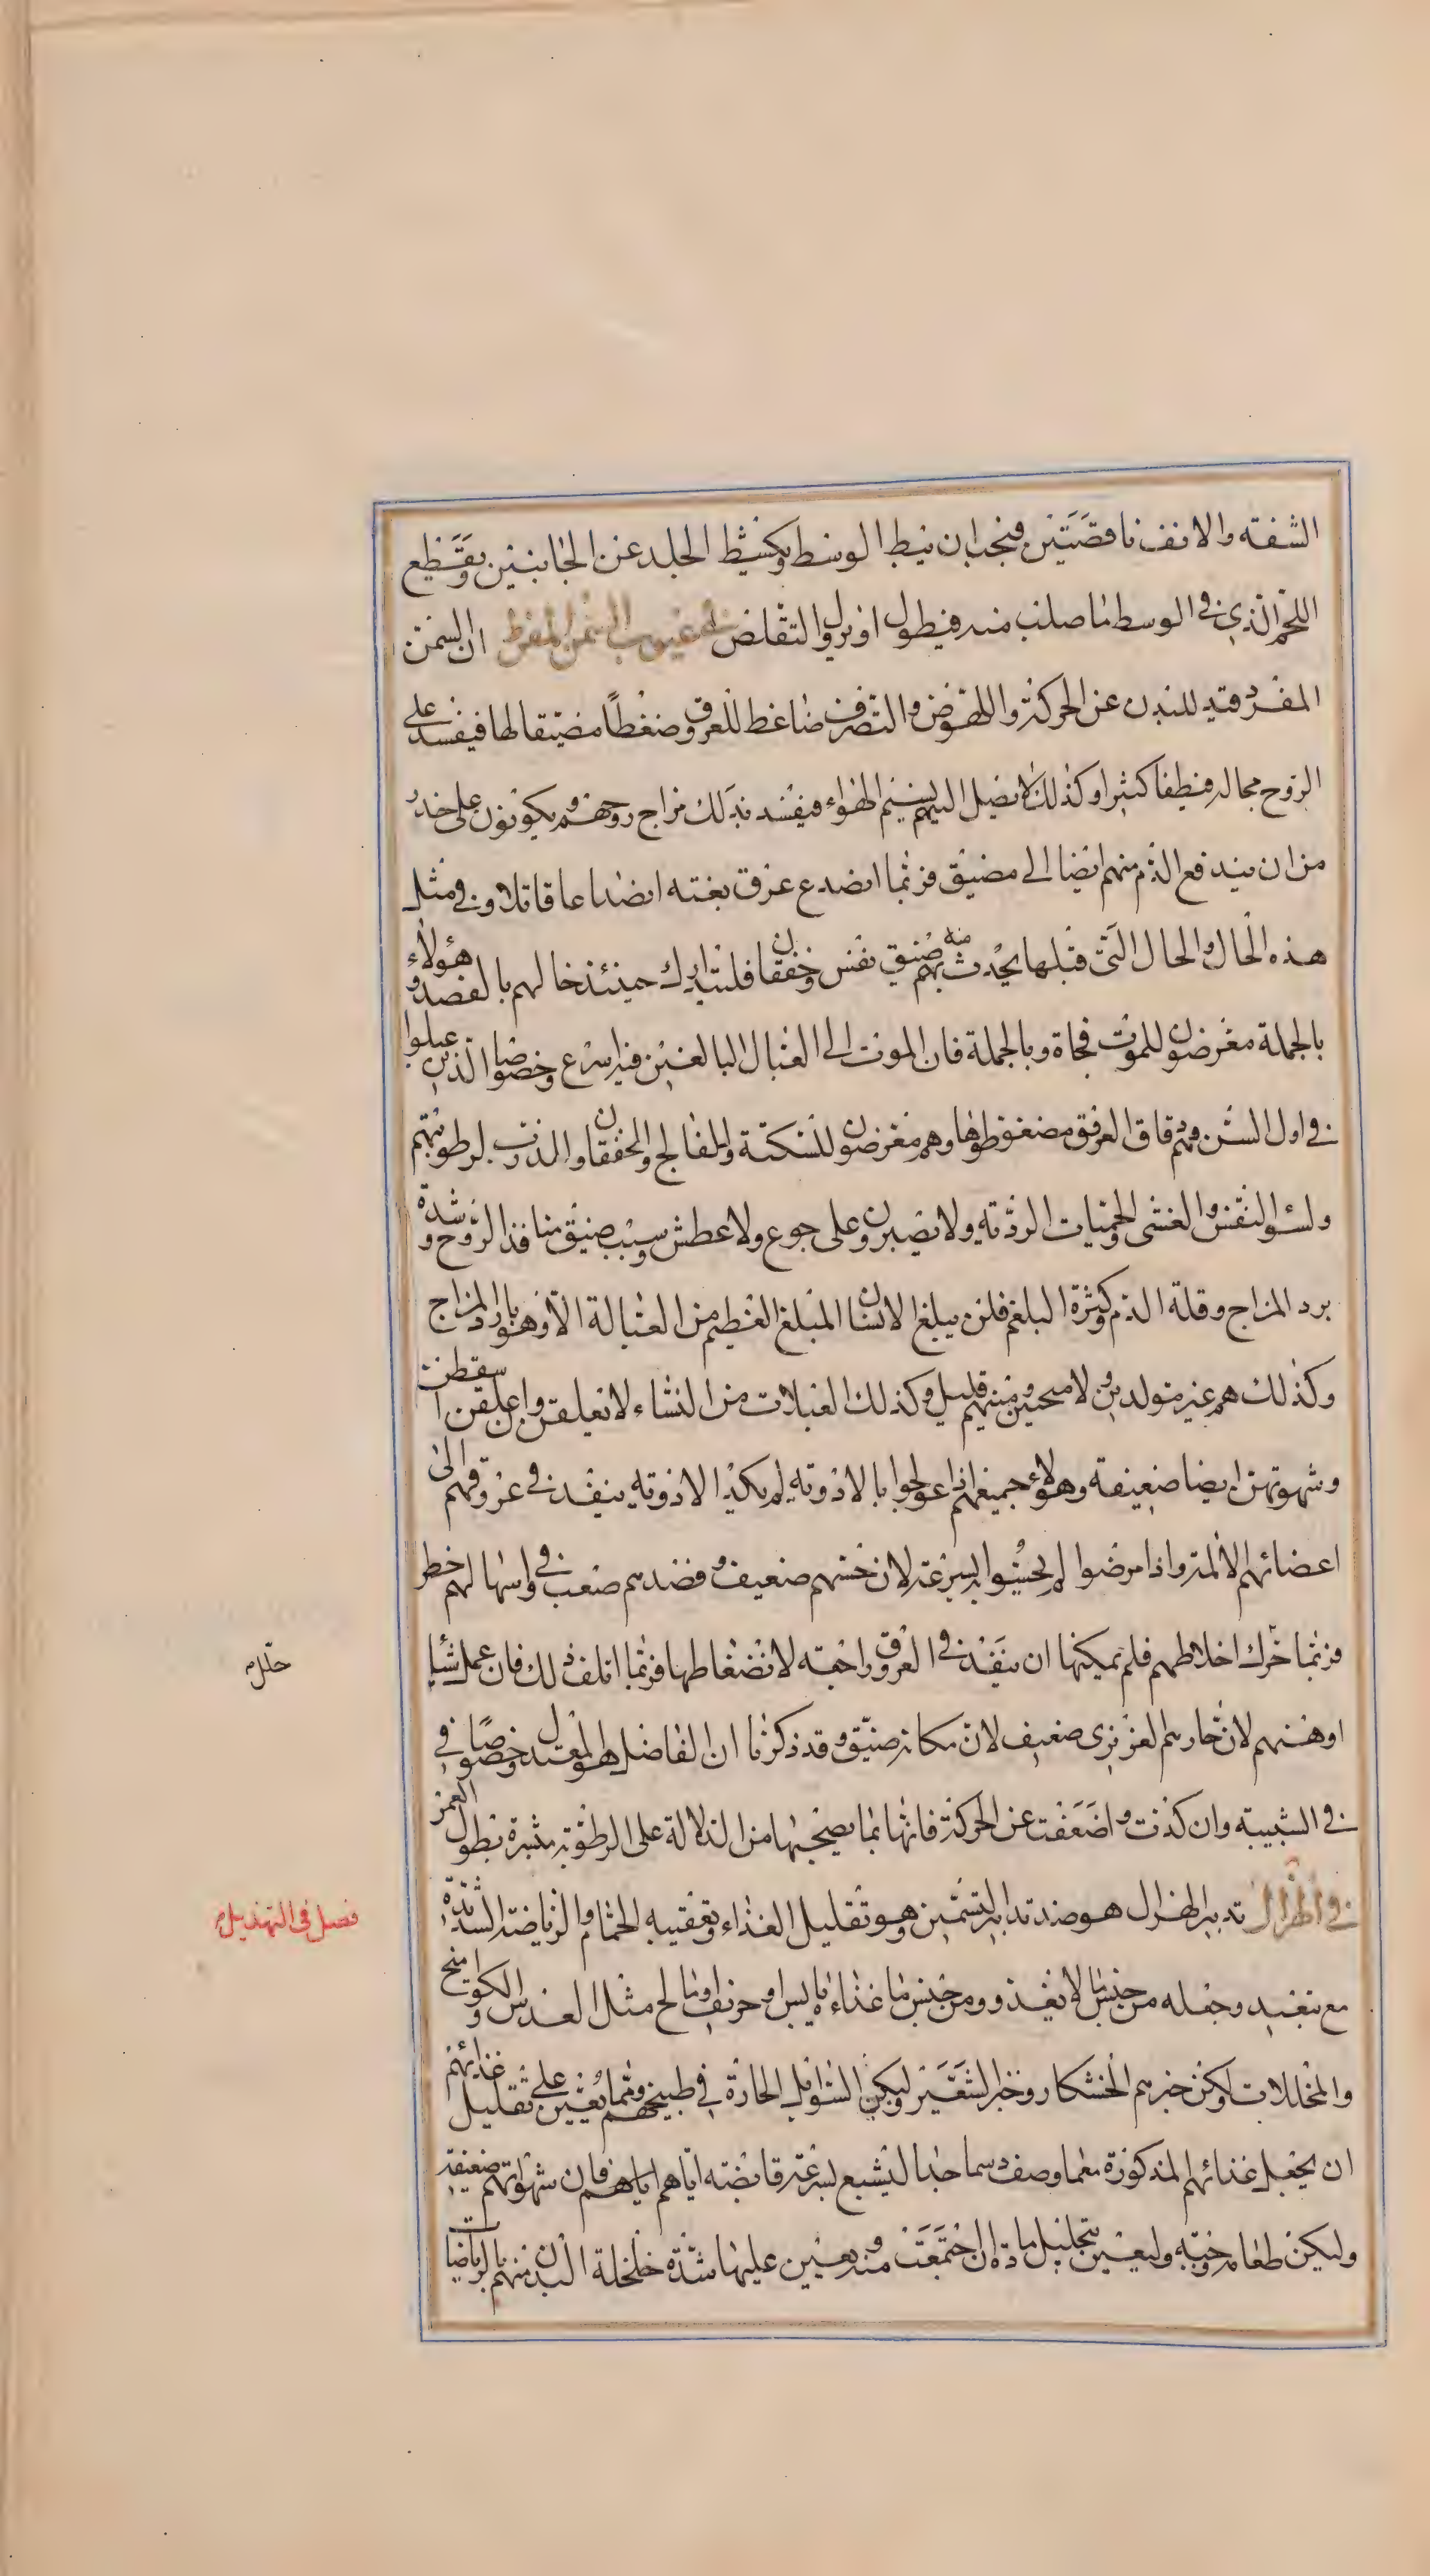 الشفته والانف ناقصتين فيجب ان يبط الوسط ويكشط الجلد عن الجانبين ويقطع
اللحم الذي في الوسط ما صلب منه فيطول او يزول التقلص في عيوب السمن المفرط ان السمن
المفرد قيد للبدن عن الحركة والنهوض والتصرف ضاغط للعروق ضغطاً مضيقا لها فيفسد على
الروح مجاله فيطفا كثيرا وكذلك لا يصل اليهم نسيم الهواء فيفسد بذلك مزاج روحهم ويكونون على خدر
من ان يندفع الدم منهم ايضا الى مضيق فربما انصدع عرق بغته انصداعا قاتلا وفي مثل
هذه الحال والحال التى قبلها يحدث بهم منه ضيق نفس وخفقان فليتدارك حينئذ حالهم بالفصد وهؤلاء
بالجملة معرضون للموت فجاة وبالجملة فان الموت الى العبال البالغين فيه اسرع وخصوصا الذين عبلوا
في اول السن فهم دقاق العروق مضغوطوها وهم معرضون للسكتة والفالج والخفقان والذرب لرطوبتهم
ولسؤ النفس والغشى والحميات الردية ولا يصبرون على جوع ولا عطش بسبب ضيق منافذ الروح وشدة
برد المزاج وقلة الدم وكثرة البلغم فلن يبلغ الانسان المبلغ العظيم من العبالة الا وهو بارد المزاج
وكذلك هم غير متولدين ولا منجبين ومنيهم قليل وكذلك العبلات من النساء لا تعلقن وان علقن اسقطن
وشهوتهن ايضا ضعيفة وهؤلاء جميعهم اذا عولجوا بالادوية لم يكد الادوية ينفذ في عروقهم الى
اعضائهم الالمة واذا مرضوا لم يحسوا بسرعة لان حسهم ضعيف وفصدهم صعب في واسهالهم خطر
فربما حرك اخلاطهم فلم يمكنها ان ينفذ في العروق راجعة لانضغاطها فربما اتلف ذلك فان عمل شيا
اوهنهم لان حارهم الغريزى ضعيف لان مكانه ضيق وقد ذكرنا ان الفاضل هو المعتدل وخصوصاً في
في الشبيبة وان كدت واضعفت عن الحركة فانها بما يصحبها من الدلالة على الرطوبة مبشرة بطول العمر
في الهزال تدبير الهزال هو ضد تدابير التسمين وهو تقليل الغذاء وتعقيبه الحمام والرياضة الشديدة
مع تبعيد وجعله من جنس ما لا يغذو ومن جنس ما غذاءه يابس او حريف او مالح مثل العدس والكوامخ
والمخللات وليكن خبزهم الخشكار وخبز الشعير وليكن التوابل الحارة في طبيخهم ومما يعين على تقليل غذائهم
ان يجعل غذائهم المذكورة مما وصف دسما جدا ليشبع بسرعة قابضته اياهم اياهم فان شهواتهم ضعيفة
وليكن طعامه وجبة وليعين بتحليل مادة ان اجتمعت ومنه يعين عليها شدة خلخلة البدن منهم بالرياضات
حلل م
فصل في التهذيل م